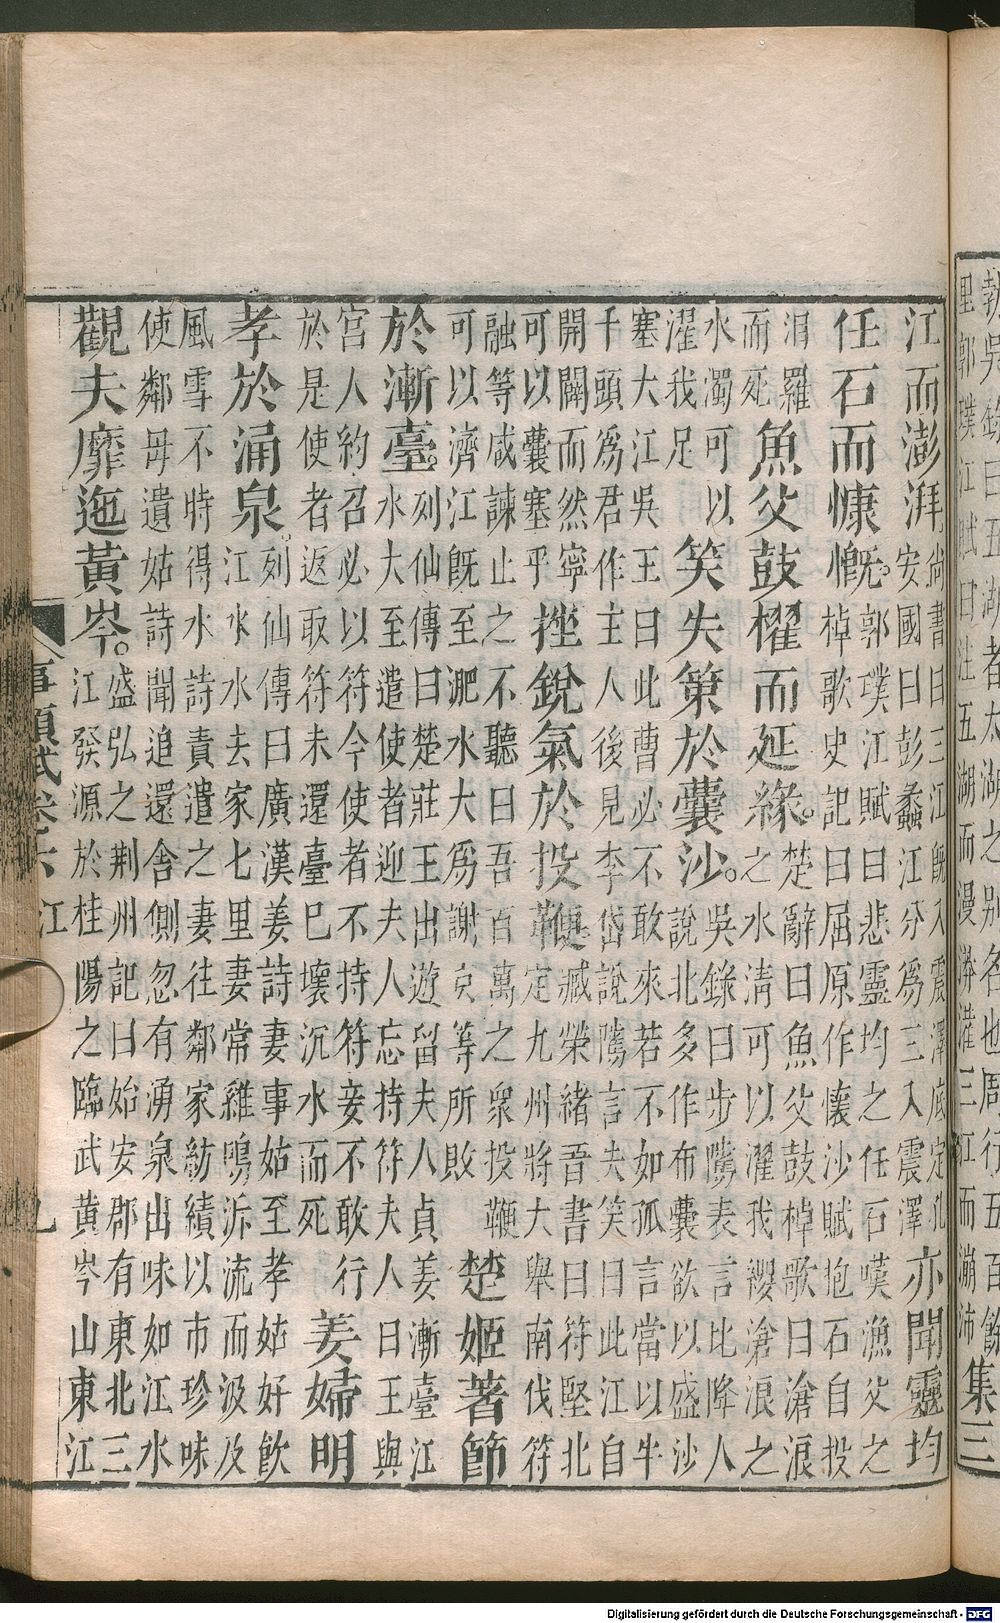 敦吳錄曰五湖者太湖之別名也周行五百餘
里郭璞江賦曰注五湖而漫漭灌三江而漰沛
集三
江而澎湃
尚書曰三江既入震澤底定孔
安國曰彭蠡江分爲三入震澤
亦聞靈均
任石而慷慨。
郭璞江賦曰悲靈均之任石嘆漁父之
棹歌史記曰屈原作懷沙賦抱石自投
汨羅
而死
魚父鼓櫂而延緣。
楚辭曰魚父鼓棹歌曰滄浪
之水清可以濯我纓滄浪之
水濁可以
濯我足
笑失策於囊沙。
吳錄曰步隲表言北降人
說北多作布囊欲以盛沙
塞大江吳王曰此曹必不敢來若不如孤言當以牛
千頭爲君作主人後見李岱說隲言夫笑曰此江自
開闢而然寧
可以囊塞乎
挫銳氣於投鞭
臧榮緒吾書曰符堅北
定九州將大舉南伐符
融等咸諫止之不聽曰吾百萬之衆投鞭
可以濟江既至淝水大爲謝玄等所敗
楚姬著節
於漸臺。
列仙傳曰楚莊王出遊留夫人貞姜漸臺江
水大至遣使者迎夫人忘持符夫人曰王與
宮人約召必以符今使者不持符妾不敢行
於是使者返取符未還臺巳壞沉水而死
姜婦明
孝於涌泉。
列仙傳曰廣漢姜詩妻事姑至孝姑好飲
江水水去家七里妻常雞鳴泝流而汲及
風雪不時得水詩責遣之妻往鄰家紡績以市珍味
使鄰母遺姑詩聞追還舍側忽有湧泉出味如江水
觀夫靡迤黃岑。
盛弘之荆州記曰始安郡有東北三
江發源於桂陽之臨武黃岑山東江
事類賦卷六 江 九
Digitalisierung gefördert durch die Deutsche Forschungsgemeinschaft - DFG